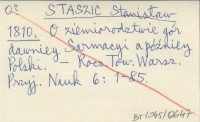 STASZIC Stanisław
1810. O ziemiorodztwie gór
dawniey Sarmacyi a poźniey
Polski. - Rocz. Tow. Warsz.
Przyj. Nauk 6: 1-85.